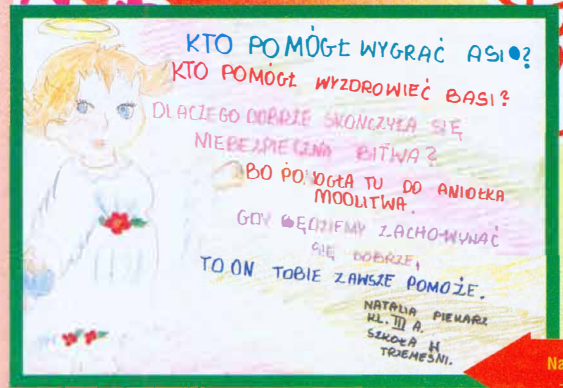 KTO POMÓGŁ WYGRAĆ ASI?
KTO POMÓGŁ WYZDROWIEĆ BASI?
DLACZEGO DOBRZE SKOŃCZYŁA SIĘ
NIEBEZPIECZNA BITWA?
BO POMOGŁA TU DO ANIOŁKA
MODLITWA.
GDY BĘDZIEMY ZACHOWYWAĆ
SIĘ DOBRZE,
TO ON TOBIE ZAWSZE POMOŻE.
NATALIA PIEKARZ
KL. III A.
SZKOŁA W
TRZEMEŚNI.
Na